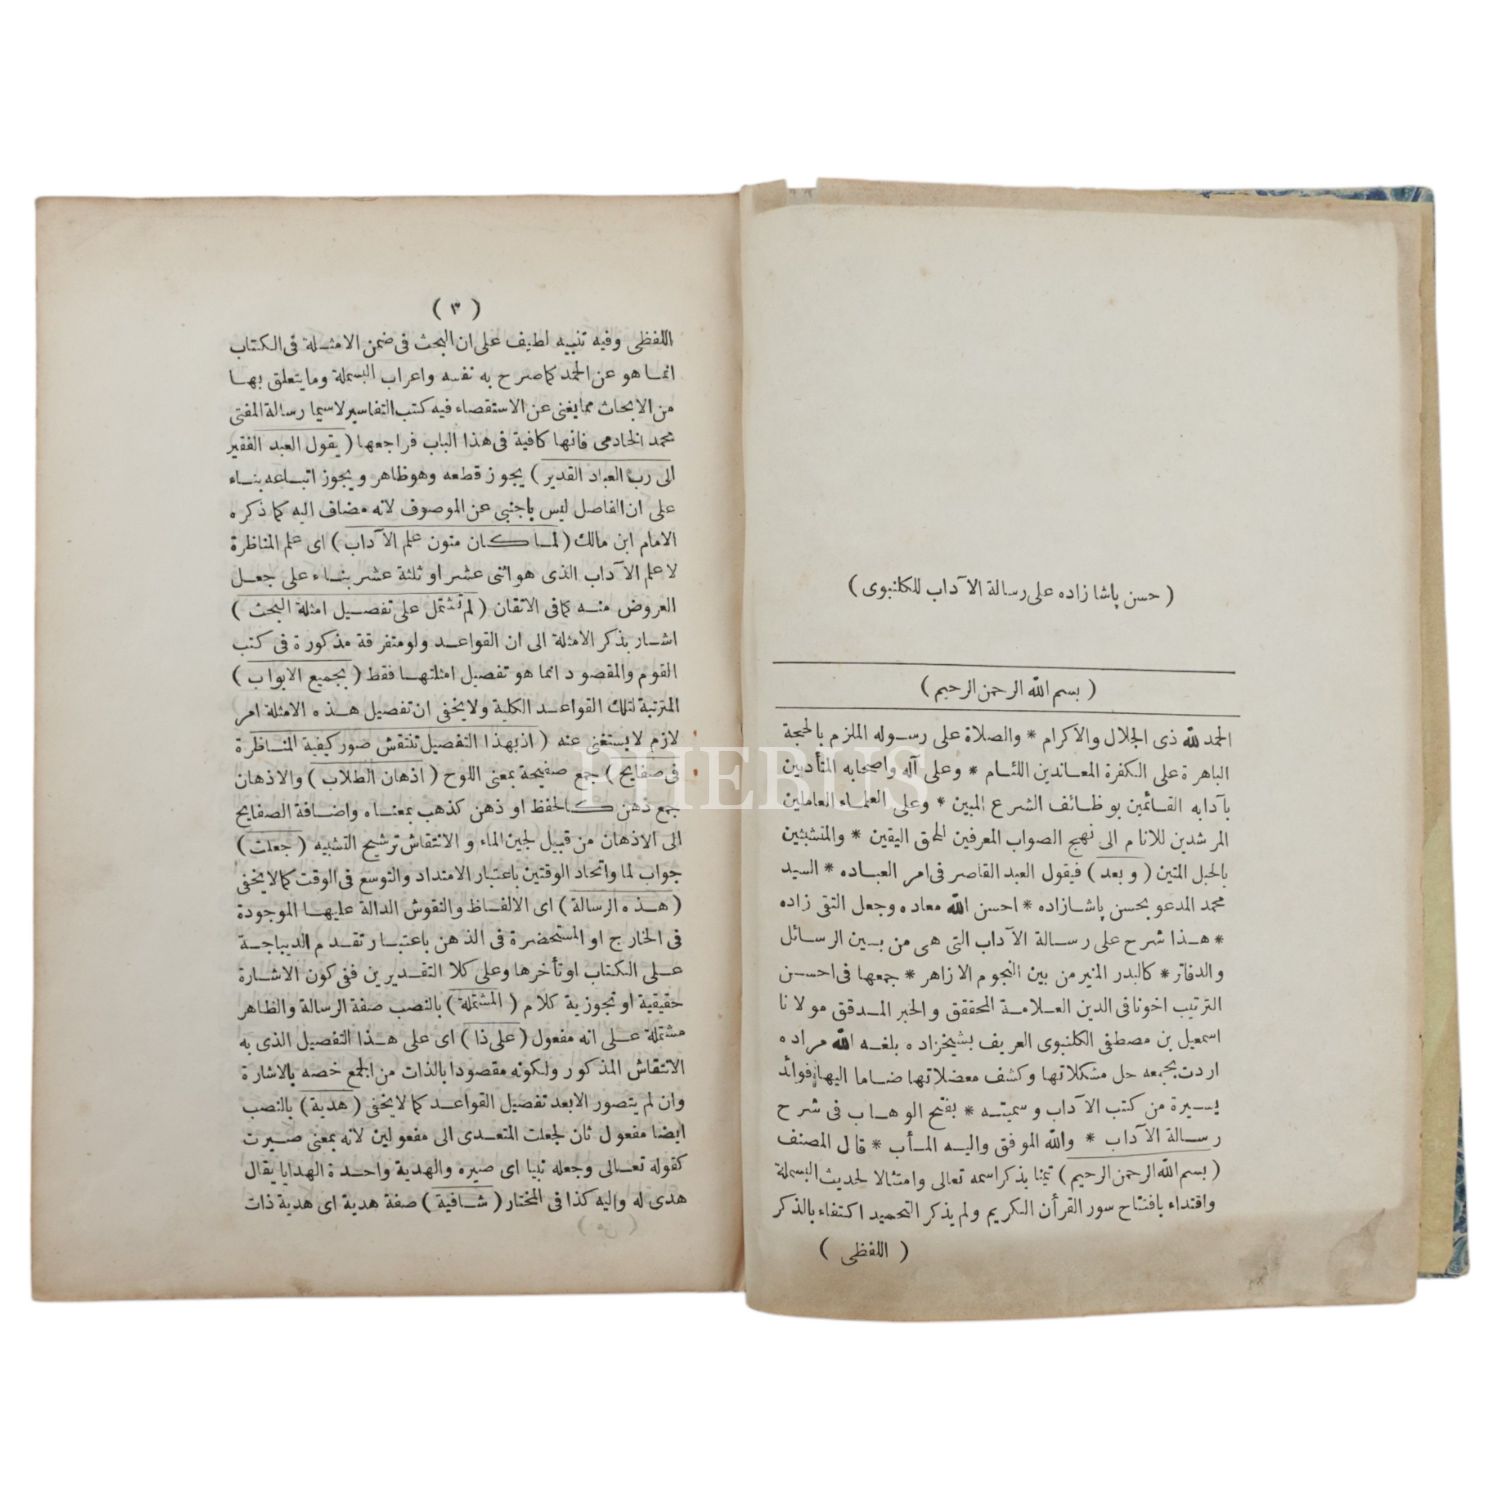 ( حسن پاشا زاده على رسالة الآداب للكلنبوى )
( بسم الله الرحمن الرحيم )
الحمد لله ذى الجلال والاكرام * والصلاة على رسوله الملزم بالحجة
الباهرة على الكفرة المعاندين اللئام * وعلى آله واصحابه المتأدبين
بآدابه القائمين بوظائف الشرع المبين * وعلى العلماء العاملين
المرشدين للانام الى نهج الصواب المعرفين الحق اليقين * والمتشبثين
بالحبل المتين ( وبعد ) فيقول العبد القاصر فى امر العباده * السيد
محمد المدعو بحسن پاشازاده * احسن الله معاده وجعل التقى زاده
* هذا شرح على رسالة الآداب التى هى من بين الرسائل
والدفاتر * كالبدر المنير من بين النجوم الازاهر * جمعها فى احسن
الترتيب اخونا فى الدين العلامة المحقق والحبر المدقق مولانا
اسمعيل بن مصطفى الكلنبوى العريف بشيخزاده بلغه الله مراده
اردت بجمعه حل مشكلاتها وكشف معضلاتها ضاما اليها فوائد
يسيرة من كتب الآداب وسميته * بفتح الوهاب فى شرح
رسالة الآداب * والله الموفق واليه المأب * قال المصنف
( بسم الله الرحمن الرحيم ) تيمنا بذكر اسمه تعالى وامتثالا لحديث البسملة
واقتداء بافتتاح سور القرأن الكريم ولم يذكر التحميد اكتفاء بالذكر
( اللفظى )
( ٣ )
اللفظى وفيه تنبيه لطيف على ان البحث فى ضمن الامثلة فى الكتاب
انما هو عن الحمد كما صرح به نفسه واعراب البسملة وما يتعلق بها
من الابحاث مما يغنى عن الاستقصاء فيه كتب التفاسير لاسيما رسالة المفتى
محمد الخادمى فانها كافية فى هذا الباب فراجعها ( يقول العبد الفقير
الى رب العباد القدير ) يجوز قطعه وهو ظاهر ويجوز اتباعه بناء
على ان الفاصل ليس باجنبى عن الموصوف لانه مضاف اليه كما ذكره
الامام ابن مالك ( لما كان متون علم الآداب ) اى علم المناظرة
لا علم الآداب الذى هو اثنى عشر او ثلثة عشر بناء على جعل
العروض منه كما فى الاتقان ( لم تشتمل على تفصيل امثلة البحث )
اشار بذكر الامثلة الى ان القواعد ولو متفرقة مذكورة فى كتب
القوم والمقصود انما هو تفصيل امثلتها فقط ( بجميع الابواب )
المترتبة لتلك القواعد الكلية ولا يخفى ان تفصيل هذه الامثلة امر
لازم لا يستغنى عنه ( اذ بهذا التفصيل تنتقش صور كيفية المناظرة
فى صفايح ) جمع صفيحة بمعنى اللوح ( اذهان الطلاب ) والاذهان
جمع ذهن كالحفظ او ذهن كذهب بمعناه واضافة الصفايح
الى الاذهان من قبيل لجين الماء والانتقاش ترشيح التشبيه ( جعلت )
جواب لما واتحاد الوقتين باعتبار الامتداد والتوسع فى الوقت كما لا يخفى
( هذه الرسالة ) اى الالفاظ والنقوش الدالة عليها الموجودة
فى الخارج او المستحضرة فى الذهن باعتبار تقدم الديباجة
على الكتاب او تأخرها وعلى كلا التقديرين ففى كون الاشارة
حقيقية او تجوزية كلام ( المشتملة ) بالنصب صفة الرسالة والظاهر
مشتملة على انه مفعول ( على ذا ) اى على هذا التفصيل الذى به
الانتقاش المذكور ولكونه مقصودا بالذات من الجمع خصه بالاشارة
وان لم يتصور الا بعد تفصيل القواعد كما لا يخفى ( هدية ) بالنصب
ايضا مفعول ثان لجعلت المتعدى الى مفعولين لانه بمعنى صيرت
كقوله تعالى وجعله نبيا اى صيره والهدية واحدة الهدايا يقال
هدى له واليه كذا فى المختار ( شافية ) صفة هدية اى هدية ذات
PHEBUS